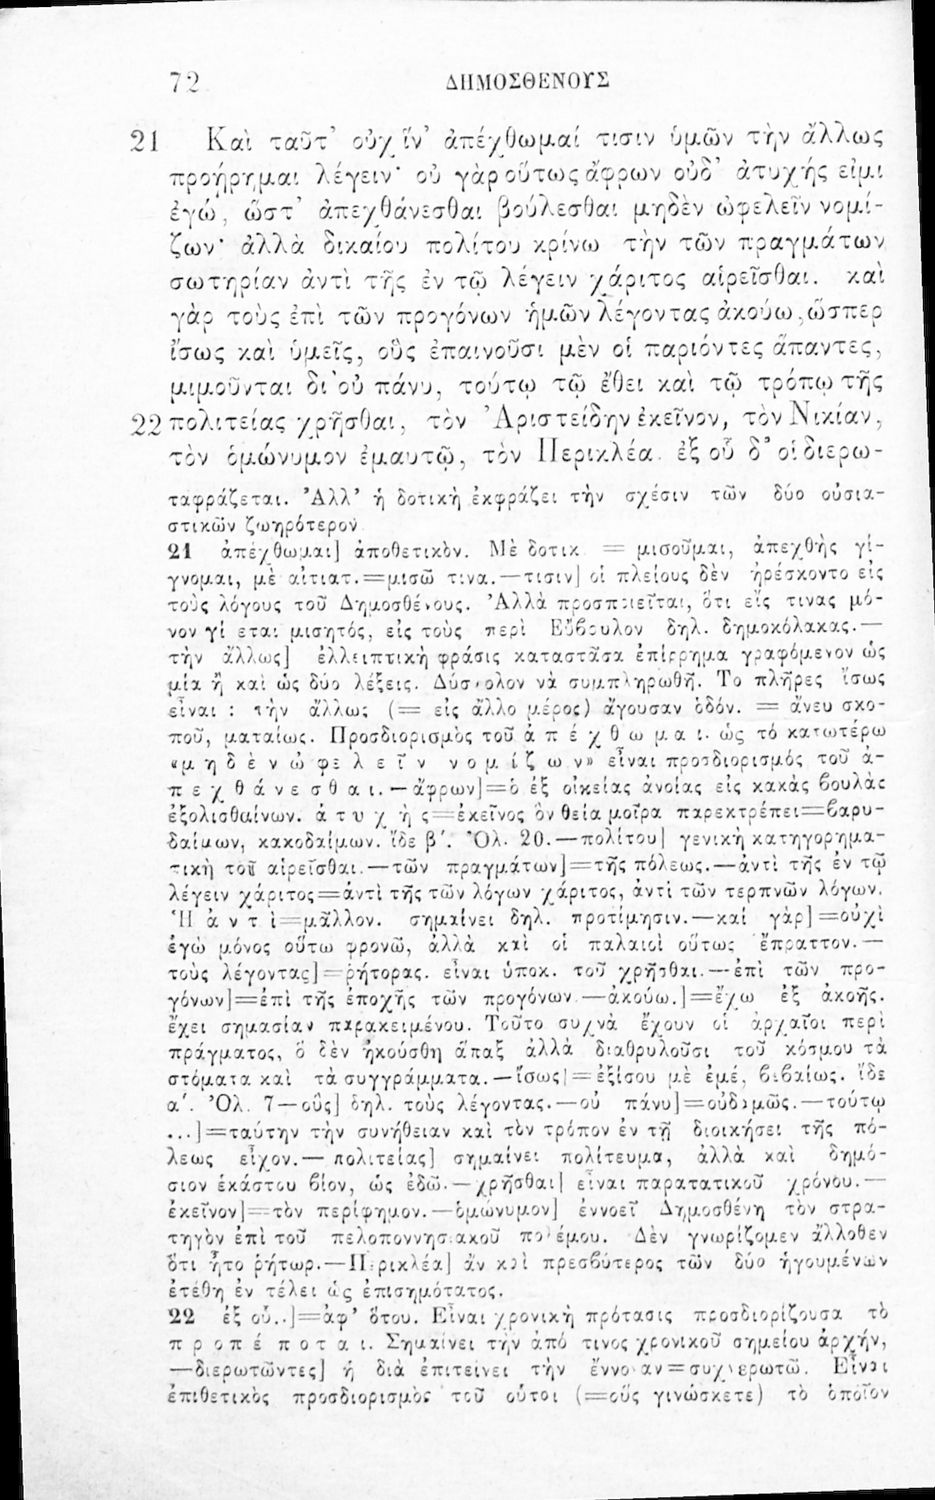 72 ΔΗΜΟΣΘΕΝΟΥΣ
21 Καὶ ταῦτ’ οὐχ ἵν’ ἀπέχθωμαί τισιν ὑμῶν τὴν ἄλλως
προῄρημαι λέγειν· οὐ γὰρ οὕτως ἄφρων οὐδ’ ἀτυχής εἰμι
ἐγώ, ὥστ’ ἀπεχθάνεσθαι βούλεσθαι μηδὲν ὠφελεῖν νομί-
ζων· ἀλλὰ δικαίου πολίτου κρίνω τὴν τῶν πραγμάτων
σωτηρίαν ἀντὶ τῆς ἐν τῷ λέγειν χάριτος αἱρεῖσθαι. καὶ
γὰρ τοὺς ἐπὶ τῶν προγόνων ἡμῶν λέγοντας ἀκούω, ὥσπερ
ἴσως καὶ ὑμεῖς, οὓς ἐπαινοῦσι μὲν οἱ παριόντες ἅπαντες,
μιμοῦνται δ’ οὐ πάνυ, τούτῳ τῷ ἔθει καὶ τῷ τρόπῳ τῆς
22 πολιτείας χρῆσθαι, τὸν Ἀριστείδην ἐκεῖνον, τὸν Νικίαν,
τὸν ὁμώνυμον ἐμαυτῷ, τὸν Περικλέα. ἐξ οὗ δ’ οἱ διερω-
ταφράζεται. Ἀλλ’ ἡ δοτικὴ ἐκφράζει τὴν σχέσιν τῶν δύο οὐσια-
στικῶν ζωηρότερον
21 ἀπέχθωμαι] ἀποθετικὸν. Μὲ δοτικ. = μισοῦμαι, ἀπεχθὴς γί-
γνομαι, μὲ αἰτιατ.=μισῶ τινα.—τισιν] οἱ πλείους δὲν ἠρέσκοντο εἰς
τοὺς λόγους τοῦ Δημοσθένους. Ἀλλὰ προσποιεῖται, ὅτι εἴς τινας μό-
νον γίνεται μισητός, εἰς τοὺς περὶ Εὔβουλον δηλ. δημοκόλακας.—
τὴν ἄλλως] ἐλλειπτικὴ φράσις καταστᾶσα ἐπίρρημα γραφόμενον ὡς
μία ἢ καὶ ὡς δύο λέξεις. Δύσκολον νὰ συμπληρωθῇ. Το πλῆρες ἴσως
εἶναι : τὴν ἄλλως (= εἰς ἄλλο μέρος) ἄγουσαν ὁδόν. = ἄνευ σκο-
ποῦ, ματαίως. Προσδιορισμὸς τοῦ ἀ π έ χ θ ω μ α ι. ὡς τό κατωτέρω
«μ η δ ὲ ν ὠ φε λ ε ῖ ν ν ο μ ί ζ ω ν» εἶναι προσδιορισμός τοῦ ἀ-
π ε χ θ ά ν ε σ θ α ι.—ἄφρων]=ὁ ἐξ οἰκείας ἀνοίας εἰς κακὰς βουλὰς
ἐξολισθαίνων. ἀ τ υ χ ὴ ς=ἐκεῖνος ὃν θεία μοῖρα παρεκτρέπει=βαρυ-
δαίμων, κακοδαίμων. ἴδε β΄. Ὀλ. 20.—πολίτου] γενικὴ κατηγορημα-
τικὴ τοῦ αἱρεῖσθαι.—τῶν πραγμάτων]=τῆς πόλεως.—ἀντὶ τῆς ἐν τῷ
λέγειν χάριτος=ἀντὶ τῆς τῶν λόγων χάριτος, ἀντὶ τῶν τερπνῶν λόγων.
Ἡ ἀ ν τ ὶ=μᾶλλον. σημαίνει δηλ. προτίμησιν.—καί γὰρ]=οὐχὶ
ἐγὼ μόνος οὕτω φρονῶ, ἀλλὰ καὶ οἱ παλαιοὶ οὕτως ἔπραττον.—
τοὺς λέγοντας]=ῥήτορας. εἶναι ὑποκ. τοῦ χρῆσθαι.—ἐπὶ τῶν προ-
γόνων]=ἐπὶ τῆς ἐποχῆς τῶν προγόνων.—ἀκούω.]=ἔχω ἐξ ἀκοῆς.
ἔχει σημασίαν παρακειμένου. Τοῦτο συχνὰ ἔχουν οἱ ἀρχαῖοι περὶ
πράγματος, ὃ δὲν ἠκούσθη ἅπαξ ἀλλὰ διαθρυλοῦσι τοῦ κόσμου τὰ
στόματα καὶ τὰ συγγράμματα.—ἴσως]=ἐξίσου μὲ ἐμέ, βεβαίως. ἴδε
α΄. Ὀλ. 7—οὓς] δηλ. τοὺς λέγοντας.—οὐ πάνυ]=οὐδαμῶς.—τούτῳ
...]=ταύτην τὴν συνήθειαν καὶ τὸν τρόπον ἐν τῇ διοικήσει τῆς πό-
λεως εἶχον.— πολιτείας] σημαίνει πολίτευμα, ἀλλὰ καὶ δημό-
σιον ἑκάστου βίον, ὡς ἐδῶ.—χρῆσθαι] εἶναι παρατατικοῦ χρόνου.—
ἐκεῖνον]=τὸν περίφημον.—ὁμώνυμον] ἐννοεῖ Δημοσθένη τὸν στρα-
τηγὸν ἐπὶ τοῦ πελοποννησιακοῦ πολέμου. Δὲν γνωρίζομεν ἄλλοθεν
ὅτι ἦτο ῥήτωρ.—Περικλέα] ἂν καὶ πρεσβύτερος τῶν δύο ἡγουμένων
ἐτέθη ἐν τέλει ὡς ἐπισημότατος.
22 ἐξ οὗ..]=ἀφ’ ὅτου. Εἶναι χρονικὴ πρότασις προσδιορίζουσα τὸ
π ρ ο π έ π ο τ α ι. Σημαίνει τὴν ἀπό τινος χρονικοῦ σημείου ἀρχήν,
—διερωτῶντες] ἡ διὰ ἐπιτείνει τὴν ἔννοιαν=συχνερωτῶ. Εἶναι
ἐπιθετικὸς προσδιορισμὸς τοῦ οὗτοι (=οὓς γινώσκετε) τὸ ὁποῖον